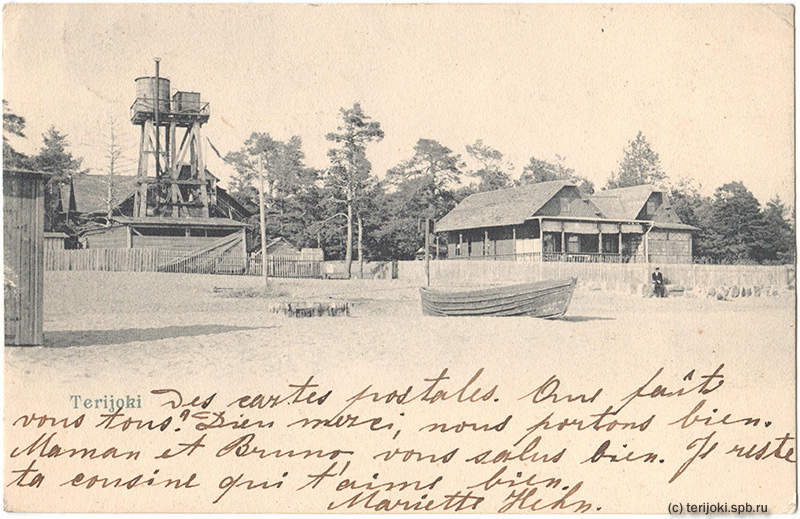 Terijoki Des cartes postales. Que faût
vous tous? Dieu merci, nous portons bien.
Maman et Bruno vous salus bien. Je reste
ta cousine qui t'aime bien.
Mariette Hehn.
(c) terijoki.spb.ru